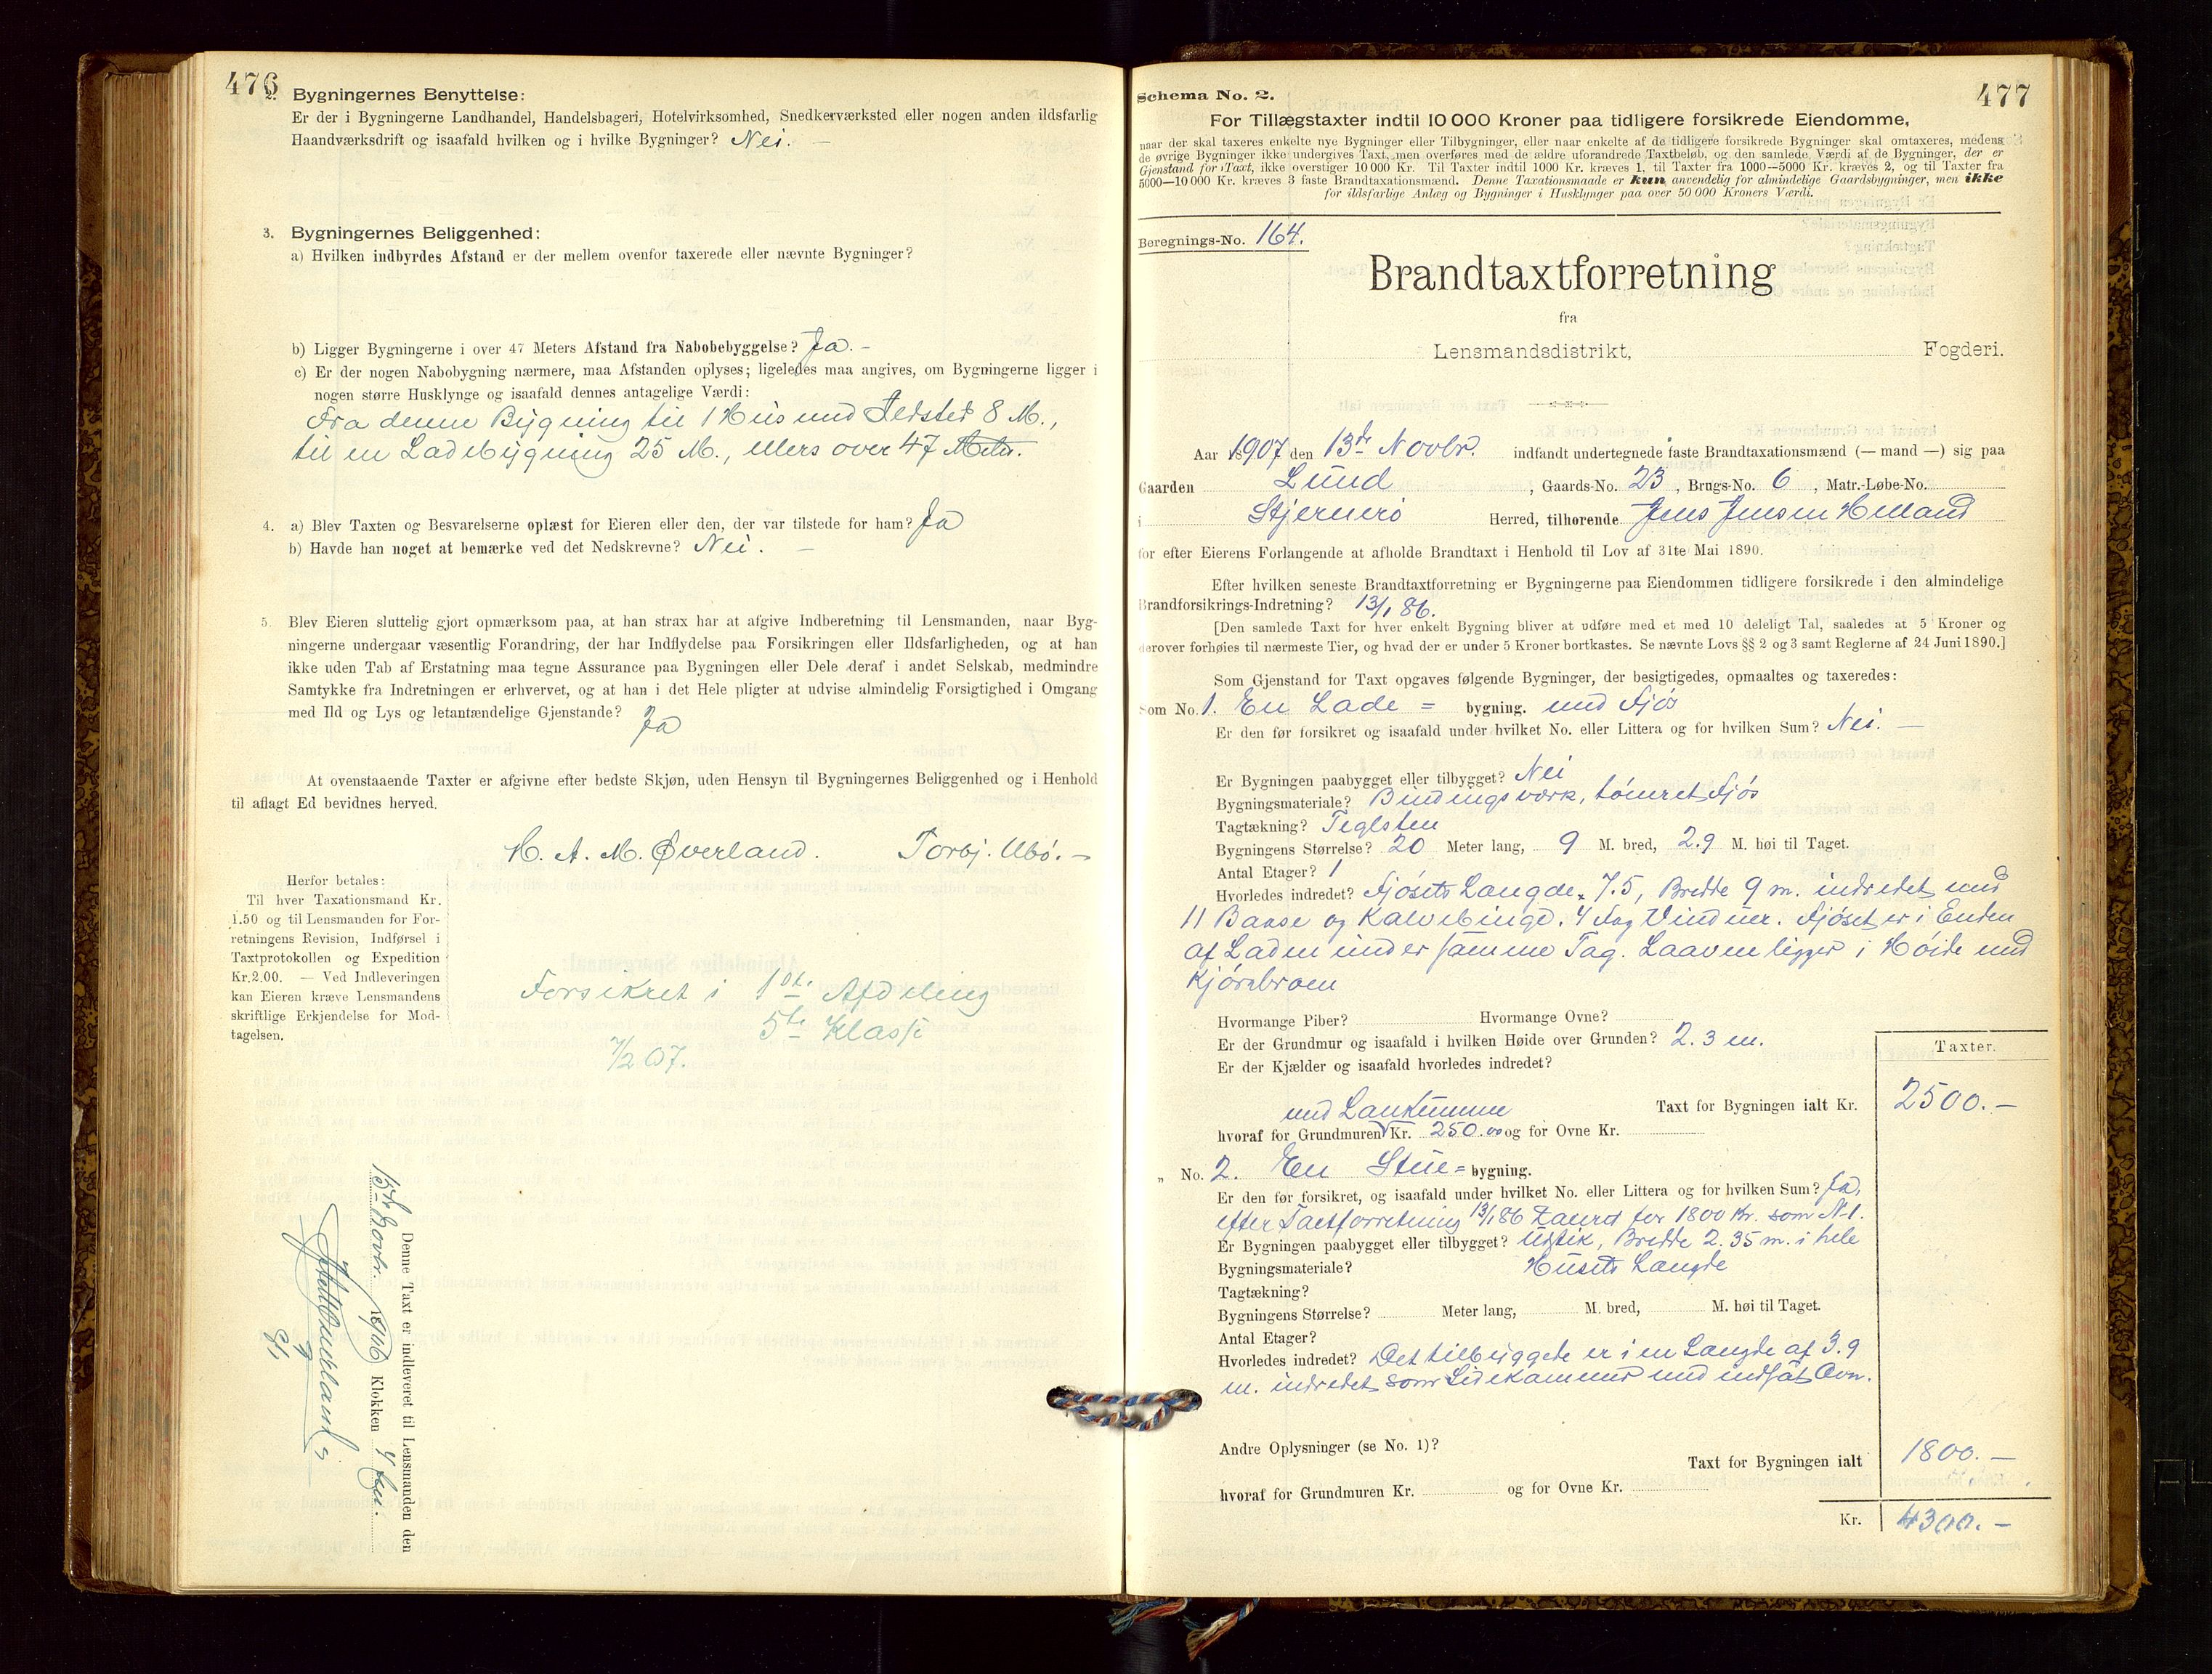 476
2. Bygningernes Benyttelse:
Er der i Bygningerne Landhandel, Handelsbageri, Hotelvirksomhed, Snedkerværksted eller nogen anden ildsfarlig
Haandværksdrift og isaafald hvilken og i hvilke Bygninger? Nei. —
3. Bygningernes Beliggenhed:
a) Hvilken indbyrdes Afstand er der mellem ovenfor taxerede eller nævnte Bygninger?
b) Ligger Bygningerne i over 47 Meters Afstand fra Nabobebyggelse? Ja. –
c) Er der nogen Nabobygning nærmere, maa Afstanden oplyses; ligeledes maa angives, om Bygningerne ligger i
nogen større Husklynge og isaafald dennes antagelige Værdi:
Fra denne Bygning til 1 Hus med Ildsted 8 M.,
til en Ladebygning 25 M., ellers over 47 Meter.
4. a) Blev Taxten og Besvarelserne oplæst for Eieren eller den, der var tilstede for ham? Ja
b) Havde han noget at bemærke ved det Nedskrevne? Nei. —
5. Blev Eieren sluttelig gjort opmærksom paa, at han strax har at afgive Indberetning til Lensmanden, naar Byg-
ningerne undergaar væsentlig Forandring, der har Indflydelse paa Forsikringen eller Ildsfarligheden, og at han
ikke uden Tab af Erstatning maa tegne Assurance paa Bygningen eller Dele deraf i andet Selskab, medmindre
Samtykke fra Indretningen er erhvervet, og at han i det Hele pligter at udvise almindelig Forsigtighed i Omgang
med Ild og Lys og letantændelige Gjenstande? Ja
At ovenstaaende Taxter er afgivne efter bedste Skjøn, uden Hensyn til Bygningernes Beliggenhed og i Henhold
til aflagt Ed bevidnes herved.
H. A. M. Øverland. Torbj. Ubø. –
Herfor betales:
Til hver Taxationsmand Kr.
1.50 og til Lensmanden for For-
retningens Revision, Indførsel i
Taxtprotokollen og Expedition
Kr.2.00. — Ved Indleveringen
kan Eieren kræve Lensmandens
skriftlige Erkjendelse for Mod-
tagelsen.
Forsikret i 1ste Afdeling
5te Klasse
7/2 07.
Denne Taxt er indleveret til Lensmanden den
15de Novbr. 1906 Klokken 4 Em.
477
Schema No. 2.
For Tillægstaxter indtil 10 000 Kroner paa tidligere forsikrede Eiendomme,
naar der skal taxeres enkelte nye Bygninger eller Tilbygninger, eller naar enkelte af de tidligere forsikrede Bygninger skal omtaxeres, medens
de øvrige Bygninger ikke undergives Taxt, men overføres med de ældre uforandrede Taxtbeløb, og den samlede Værdi af de Bygninger, der er
Gjenstand for Taxt, ikke overstiger 10 000 Kr. Til Taxter indtil 1000 Kr. kræves 1, til Taxter fra 1000—5000 Kr. kræves 2, og til Taxter fra
5000—10 000 Kr. kræves 3 faste Brandtaxationsmænd. Denne Taxationsmaade er kun anvendelig for almindelige Gaardsbygninger, men ikke
for ildsfarlige Anlæg og Bygninger i Husklynger paa over 50 000 Kroners Værdi.
Beregnings-No. 164.
Brandtaxtforretning
fra
Lensmandsdistrikt, Fogderi.
Aar 1907 den 13de Novbr. indfandt undertegnede faste Brandtaxationsmænd (— mand —) sig paa
Gaarden Lund, Gaards-No. 23, Brugs-No. 6, Matr.-Løbe-No.
i Stjernerø Herred, tilhørende Jens Jensen Helland
for efter Eierens Forlangende at afholde Brandtaxt i Henhold til Lov af 31te Mai 1890.
Efter hvilken seneste Brandtaxtforretning er Bygningerne paa Eiendommen tidligere forsikrede i den almindelige
Brandforsikrings-Indretning? 13/1 86.
[Den samlede Taxt for hver enkelt Bygning bliver at udføre med et med 10 deleligt Tal, saaledes at 5 Kroner og
derover forhøies til nærmeste Tier, og hvad der er under 5 Kroner bortkastes. Se nævnte Lovs §§ 2 og 3 samt Reglerne af 24 Juni 1890.]
Som Gjenstand for Taxt opgaves følgende Bygninger, der besigtigedes, opmaaltes og taxeredes:
Som No. 1. En Lade = bygning. med Fjøs
Er den før forsikret og isaafald under hvilket No. eller Littera og for hvilken Sum? Nei. —
Er Bygningen paabygget eller tilbygget? Nei
Bygningsmateriale? Bindingsværk, tømret Fjøs
Tagtækning? Teglsten
Bygningens Størrelse? 20 Meter lang, 9 M. bred, 2.9 M. høi til Taget.
Antal Etager? 1
Hvorledes indredet? Fjøsets Længde 7.5, Bredde 9 m. indredet med
11 Baase og Kalvebinge. 4 Fag Vinduer. Fjøset er i Enden
af Laden under samme Tag. Laaven ligger i Høide med
Kjørebroen
Hvormange Piber? Hvormange Ovne?
Er der Grundmur og isaafald i hvilken Høide over Grunden? 2.3 m.
Er der Kjælder og isaafald hvorledes indredet?
Taxter.
med Lankumme Taxt for Bygningen ialt Kr. 2500. –
hvoraf for Grundmuren Kr. 250.00 og for Ovne Kr.
„ No. 2. En Stue = bygning.
Er den før forsikret, og isaafald under hvilket No. eller Littera og for hvilken Sum? Ja,
efter Taxtforretning 13/1 86 taxeret for 1800 Kr. som N 1.
Er Bygningen paabygget eller tilbygget? Udstik, Bredde 2.35 m. i hele
Bygningsmateriale? Husets Længde
Tagtækning?
Bygningens Størrelse? Meter lang, M. bred, M. høi til Taget.
Antal Etager?
Hvorledes indredet? Det tilbyggede er i en Længde af 3.9
m. indredet som Sidekammer med indsat Ovn.
Andre Oplysninger (se No. 1)?
Taxt for Bygningen ialt 1800. –
hvoraf for Grundmuren Kr. og for Ovne Kr.
Kr. 4300. –